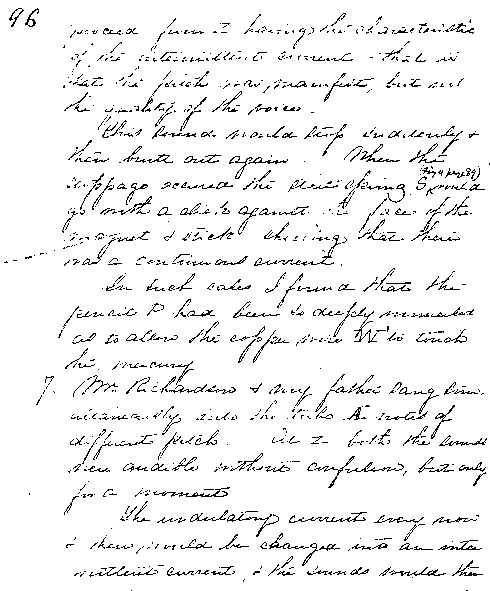 96
proceed from I having the characteristic
of the intermittent current - that is
that the pitch was manifest, but not
the quality of the voices.
This sound would stop suddenly &
then burst out again. When the
stoppage occured the steel spring S would
(fig 4 page 89)
go with a click against the face of the
magnet & stick showing that there
was a continuous current.
In such cases I found that the
pencil P had been so deeply immersed
as to allow the copper wire W to touch
the mercury
7. Mr. Richardson & my father sang sim-
ultaneously into the tube notes of
different pitch. At I both the sounds
were audible without confusion, but only
for a moment
The undulatory current every now
& then would be changed into an inter
mittent current, & the sounds would then